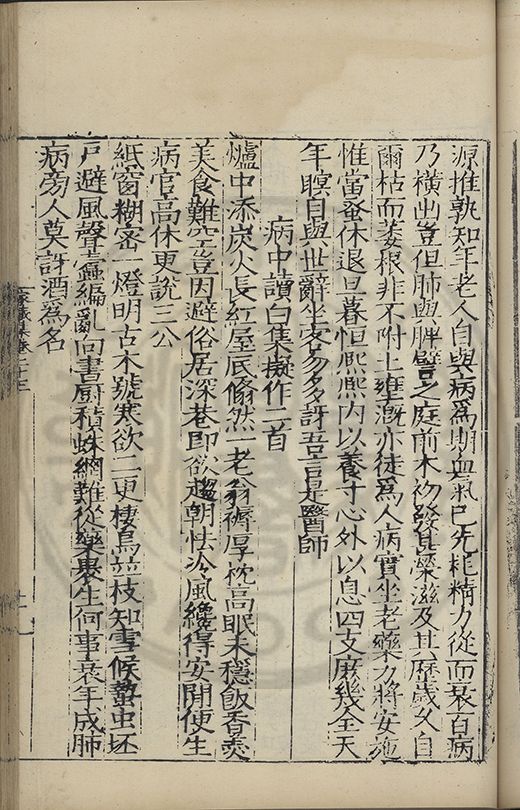 源推孰知年老人自與病爲期血氣已先耗精力從而衰百病
乃橫出豈但肺與脾譬之庭前木初發其榮滋及其歷歲久自
爾枯而萎根非不附土壅漑亦徒爲人病實坐老藥力將安施
惟當蚤休退旦暮恒熙熙内以養寸心外以息四支庶幾全天
年瞑自與世辭坐客勿多訝吾言是醫師
病中讀白集擬作二首
爐中添炭火長紅屋底翛然一老翁褥厚枕高眠未穩飯香羮
美食難空豈因避俗居深巷即欲趨朝怯冷風纔得安閒便生
病官高休更說三公
紙窗糊密一燈明古木號寒欲二更棲鳥並枝知雪候蟄虫坯
戸避風聲蠹編亂向書厨積蛛網難從藥裹生何事衰年成肺
病旁人莫訝酒爲名
家藏集卷二十三